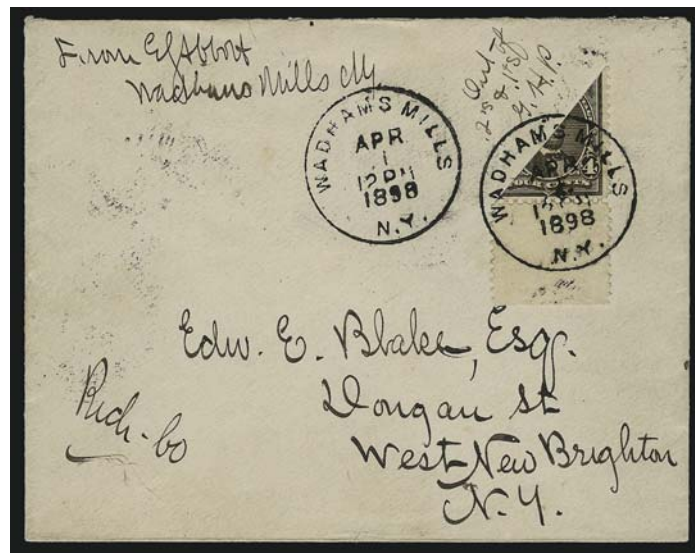 From E G Abbott
Wadhams Mills NY
Out of
2's & 1's
P
WADHAM'S MILLS
APR
1
12 PM
1898
N.Y.
WADHAM'S MILLS
APR
1
12 PM
1898
N.Y.
4
Edw. E. Blake, Esq.
Dongan St
West New Brighton
N.Y.
Rich-Co